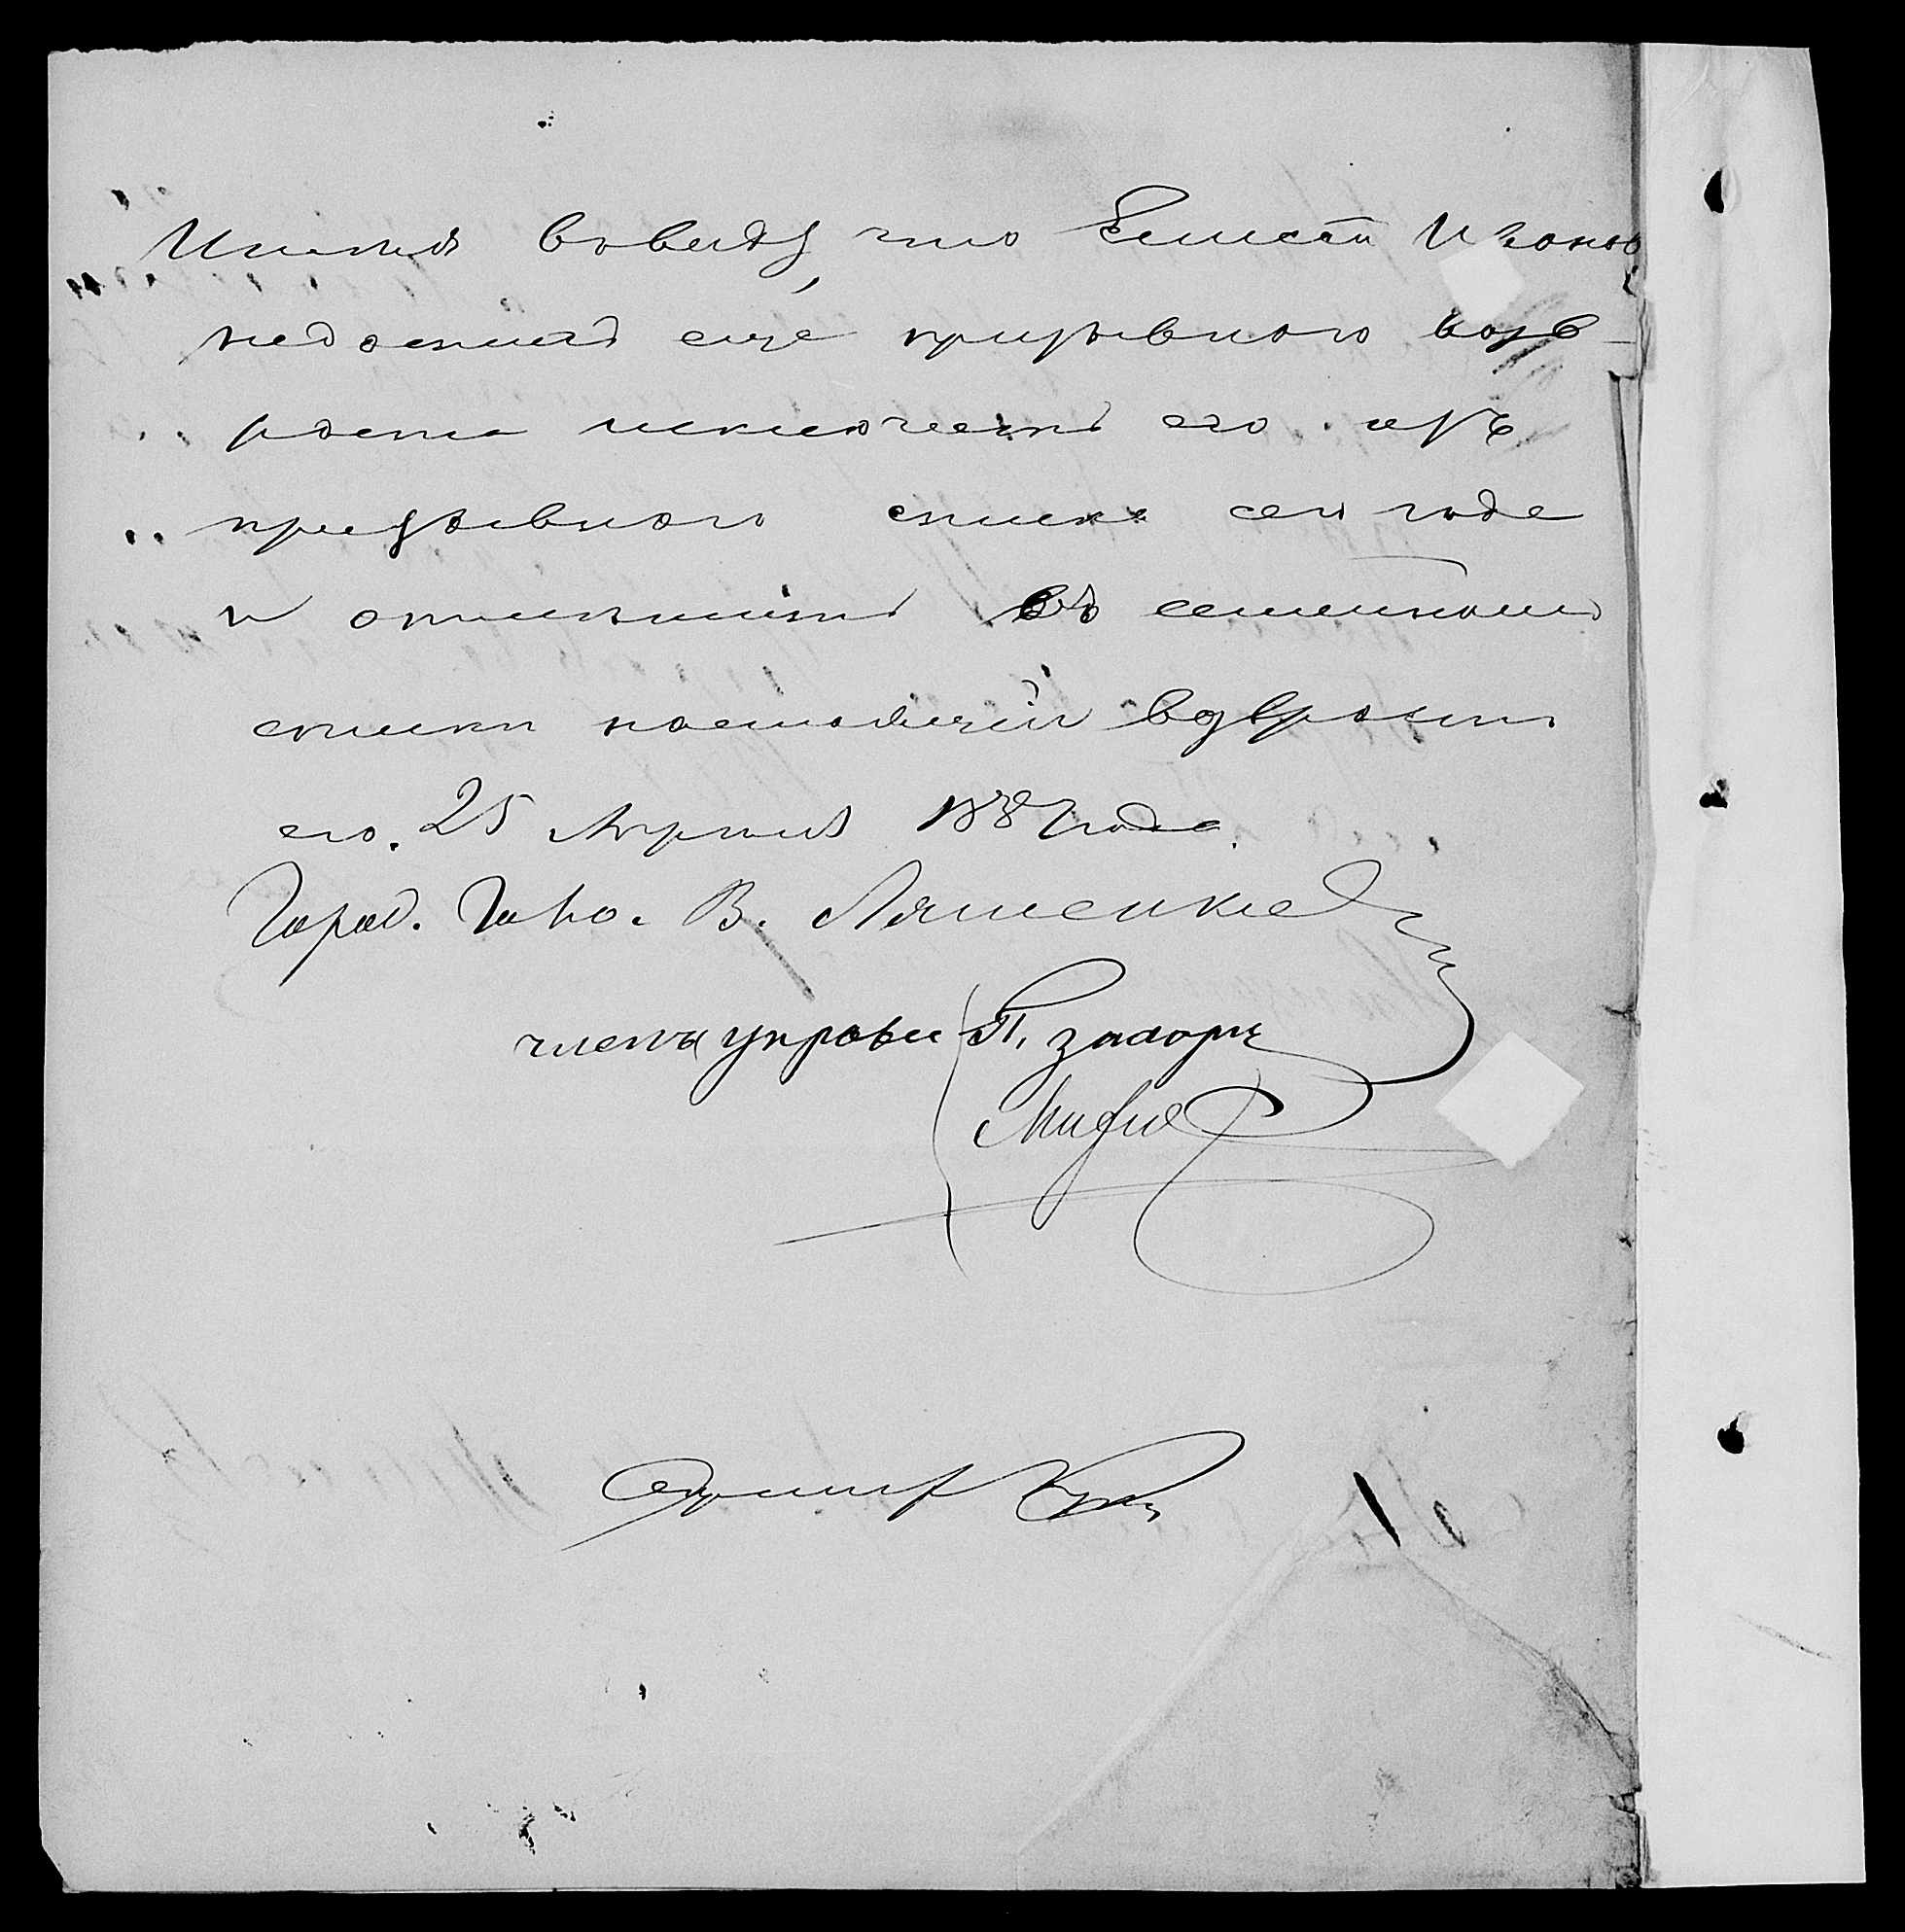 Имея ввиду, что
недостиг еще призывного возв-
раста исключить его изъ
призывного списка сего года
и отметить въ семейномъ
списке настоящій возврастъ
его. 25 Апреля 188 года.
Город. Голо. В. Ляшенко
члены управы П.